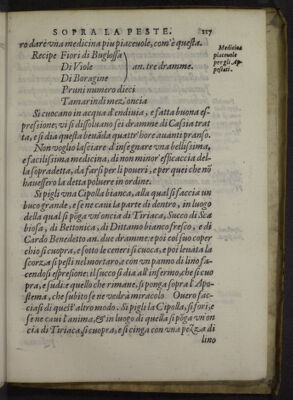 SOPRA LA PESTE. 217
ro darè vna medicina piu piaceuole, com'è questa.
Medicina
piaceuole
per gli Ap
pestati.
Recipe Fiori di Buglossa
Di Viole an. tre dramme.
Di Boragine
Pruni numero dieci
Tamarindi mez'oncia
Si cuocano in acqua d'endiuia, e fatta buona es-
pressione; vi si dissoluano sei dramme di Cassia trat
ta, e si dia questa beuãda quattr'hore auanti pranso.
Non voglio lasciare d'insegnare vna bellissima,
e facilissima medicina, di non minor' efficaccia del-
la sopradetta, da farsi per li poueri, e per quei che nõ
hauessero la detta poluere in ordine.
Si pigli vna Cipolla bianca, alla qual si faccia un
buco grande, e se ne caui la parte di dentro, in luogo
della qual si põga vn'oncia di Tiriaca, Succo di Sca
biosa, di Bettonica, di Dittamo bianco fresco, e di
Cardo Benedetto an. due dramme: e poi col suo coper
chio si cuopra, e sotto le ceneri si cuoca, e poi leuata la
scorza si pesti nel mortaro, e con un panno di lino fa-
cendosi espressione, il succo si dia all'infermo, che si cuo
pra, e sudi: e quello che rimane, si ponga sopra l'Apo-
stema, che subito se ne vedrà miracolo Ouero fac-
ciasi di quest'altro modo. Si pigli la Cipolla, si fori, e
se ne caui l'anima, & in luogo di quella si põga vn'on
cia di Tiriaca, si cuopra, e si cinga con vna pezza di
lino